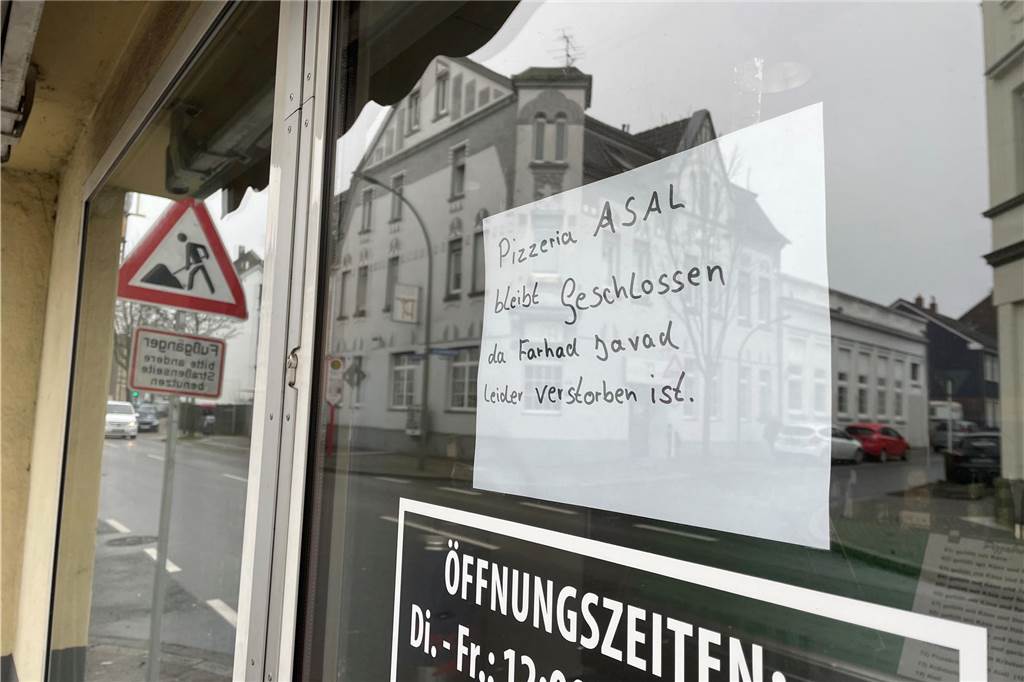 Pizzeria ASAL
bleibt Geschlossen
da Farhad Javad
Leider verstorben ist.
ÖFFNUNGSZEITEN:
Di.-Fr.:
Fußgänger
bitte andere
Straßenseite
benutzen